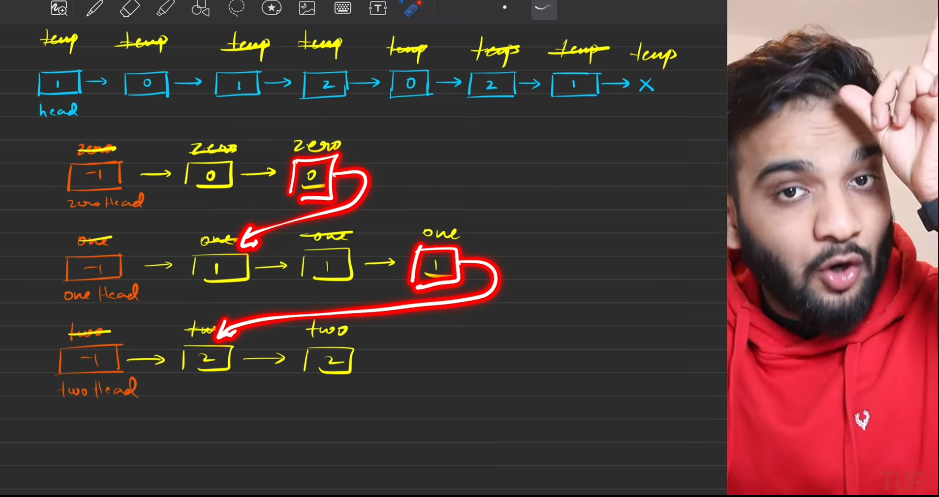 temp temp temp temp temp temps temp temp
1 → 0 → 1 → 2 → 0 → 2 → 1 → X
head
zero zero zero
-1 → 0 → 0
zeroHead
one one one one
-1 → 1 → 1 → 1
oneHead
two two two
-1 → 2 → 2
twoHead
TUF